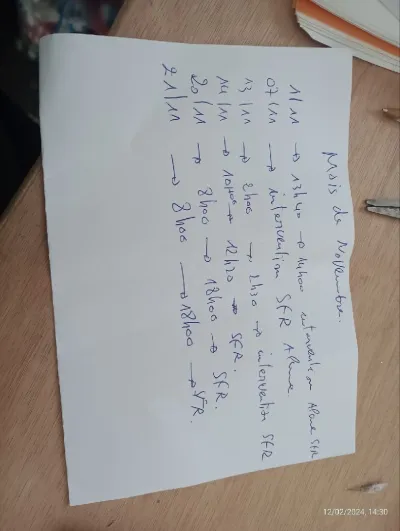 Mois de Novembre.
1/11 → 13h40 → 14h00 intervention Alarme SFR
07/11 → intervention SFR Alarme
13/11 → 8h00 → 2h30 → intervention SFR
14/11 → 10h00 → 12h30 → SFR.
20/11 → 8h00 → 18h00 → SFR.
21/11 → 8h00 → 18h00 → SFR.
12/02/2024, 14:30